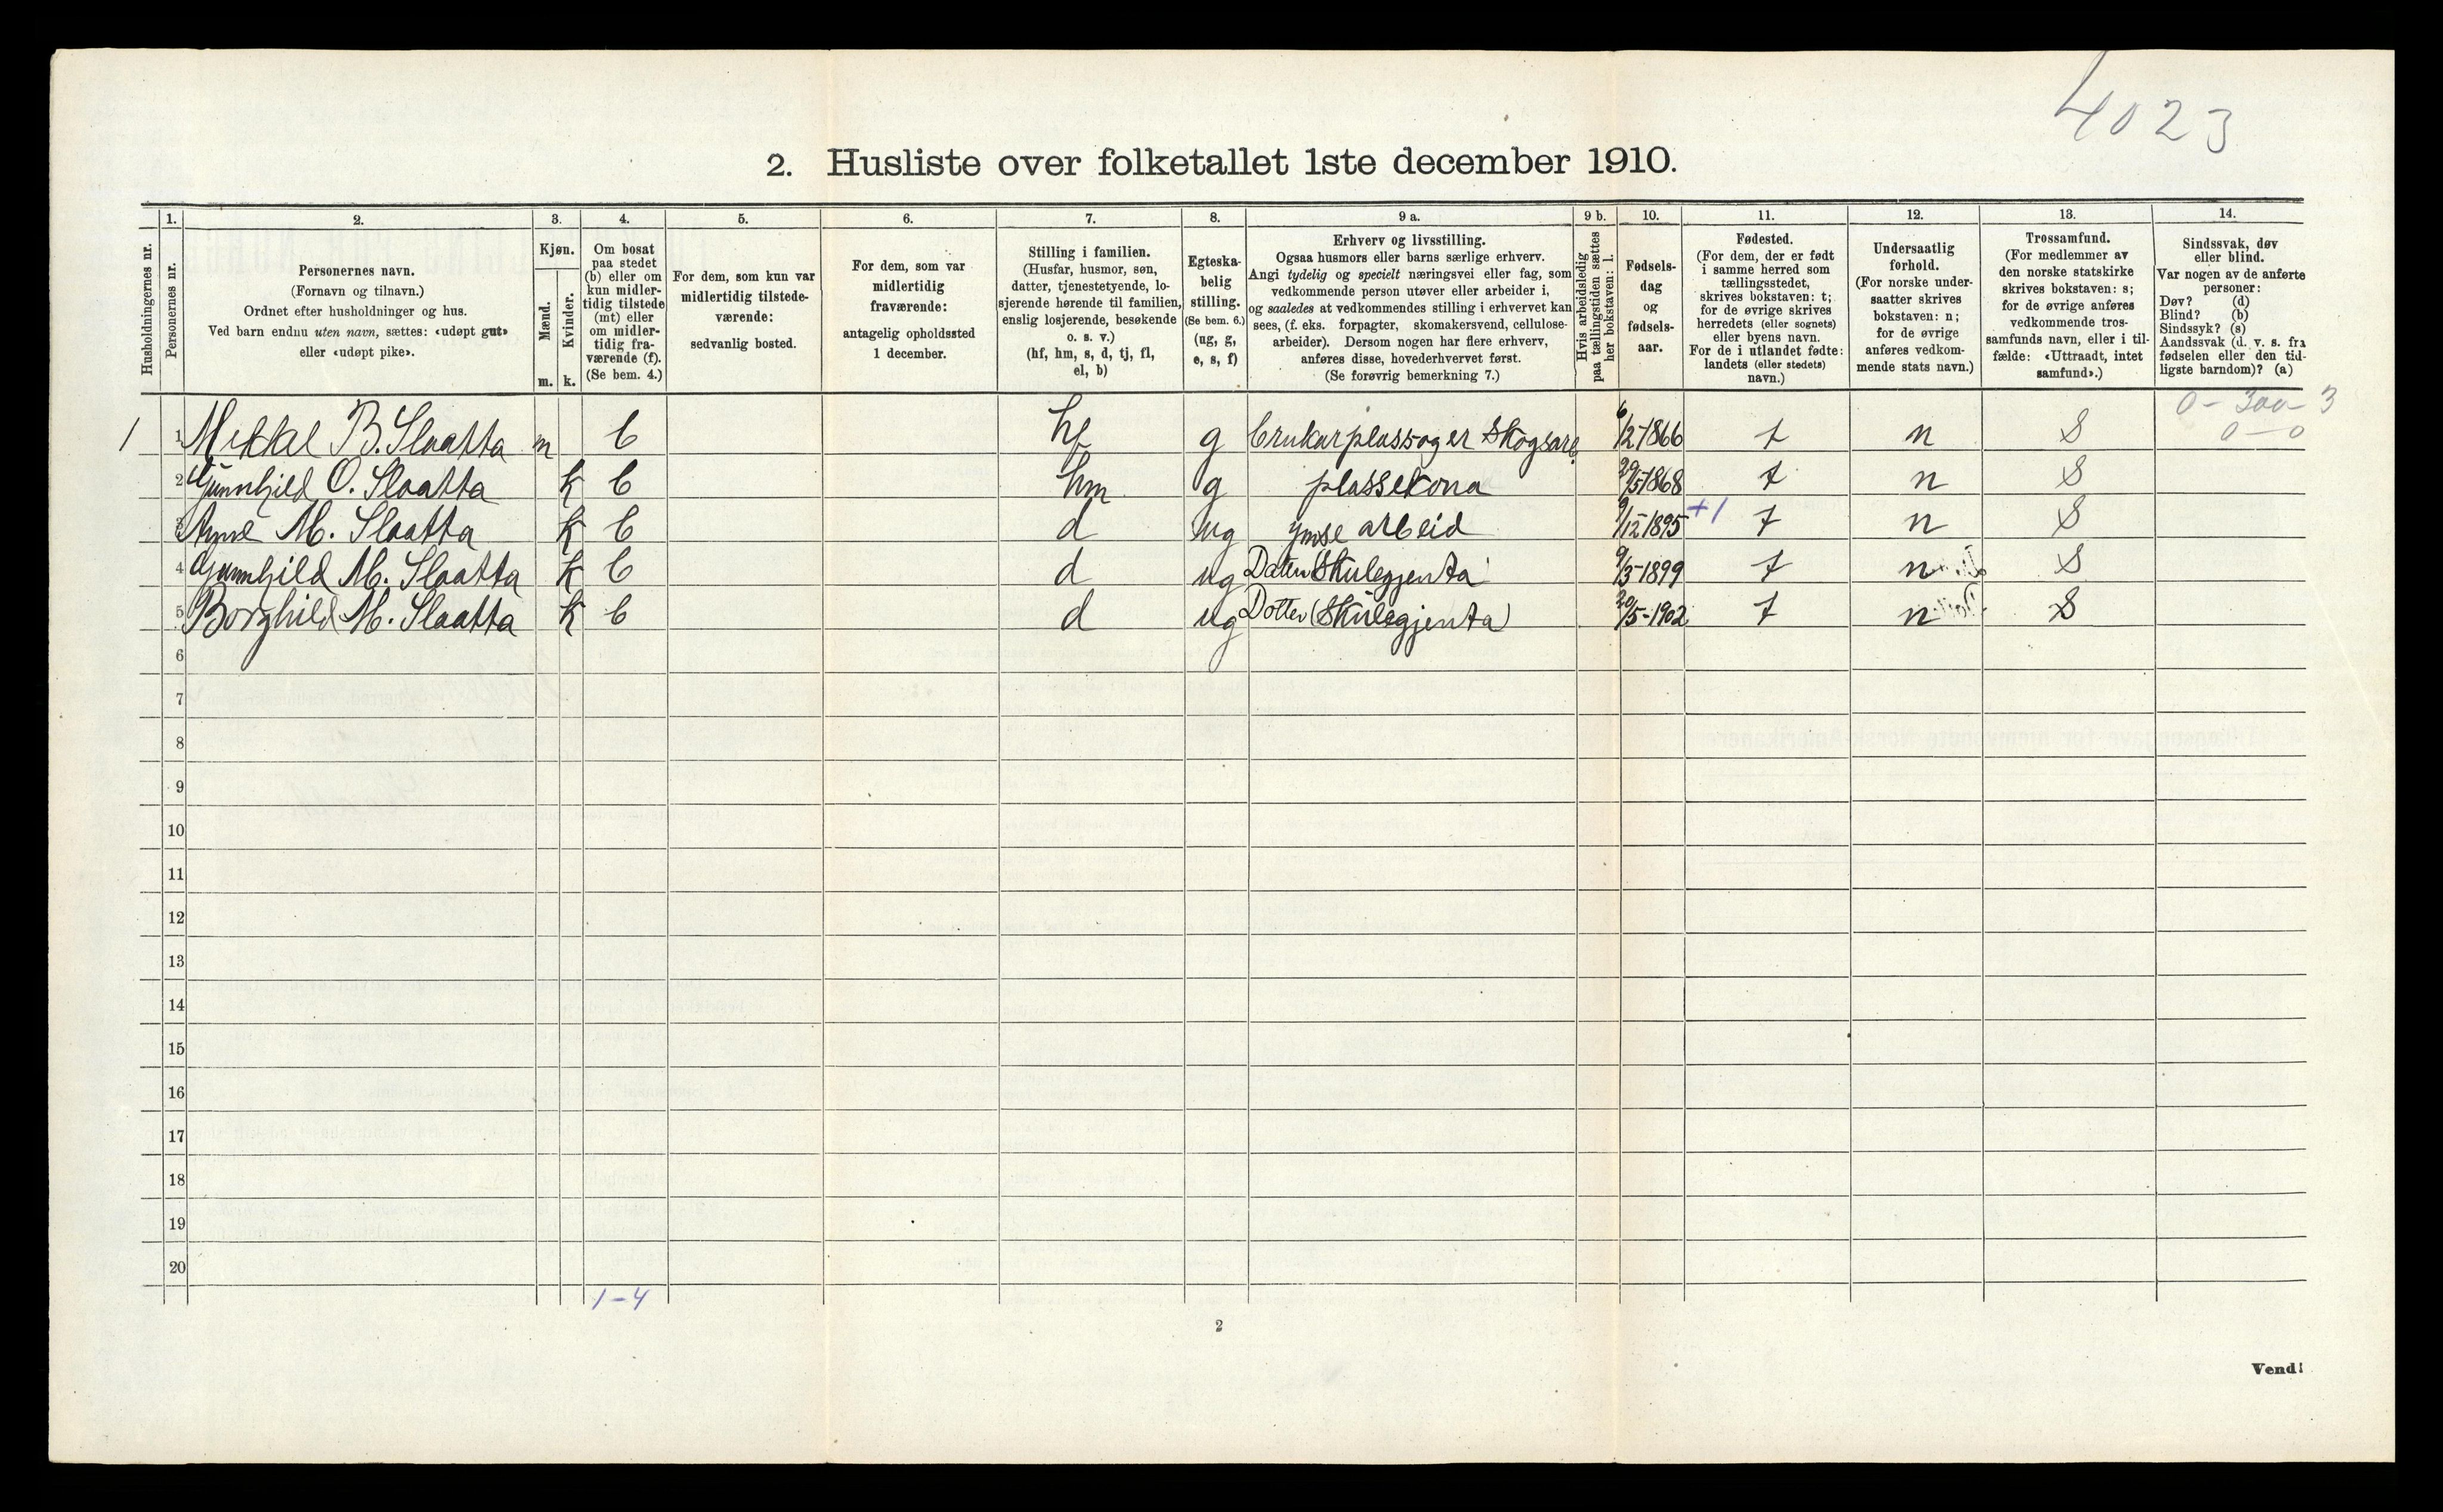 4023
2. Husliste over folketallet 1ste december 1910.
Husholdningernes nr.
1.
Personernes nr.
2.
Personernes navn.
(Fornavn og tilnavn.)
Ordnet efter husholdninger og hus.
Ved barn endnu uten navn, sættes: «udøpt gut»
eller «udøpt pike».
3.
Kjøn.
Mænd.
Kvinder.
m. k.
4.
Om bosat
paa stedet
(b) eller om
kun midler-
tidig tilstede
(mt) eller
om midler-
tidig fra-
værende (f).
(Se bem. 4.)
5.
For dem, som kun var
midlertidig tilstede-
værende:
sedvanlig bosted.
6.
For dem, som var
midlertidig
fraværende:
antagelig opholdssted
1 december.
7.
Stilling i familien.
(Husfar, husmor, søn,
datter, tjenestetyende, lo-
sjerende hørende til familien,
enslig losjerende, besøkende
o. s. v.)
(hf, hm, s, d, tj, fl,
el, b)
8.
Egteska-
belig
stilling.
(Se bem. 6.)
(ug, g,
e, s, f)
9 a.
Erhverv og livsstilling.
Ogsaa husmors eller barns særlige erhverv.
Angi tydelig og specielt næringsvei eller fag, som
vedkommende person utøver eller arbeider i,
og saaledes at vedkommendes stilling i erhvervet kan
sees, (f. eks. forpagter, skomakersvend, cellulose-
arbeider). Dersom nogen har flere erhverv,
anføres disse, hovederhvervet først.
(Se forøvrig bemerkning 7.)
9 b.
Hvis arbeidsledig
paa tællingstiden sættes
her bokstaven: l.
10.
Fødsels-
dag
og
fødsels-
aar.
11.
Fødested.
(For dem, der er født
i samme herred som
tællingsstedet,
skrives bokstaven: t;
for de øvrige skrives
herredets (eller sognets)
eller byens navn.
For de i utlandet fødte:
landets (eller stedets)
navn.)
12.
Undersaatlig
forhold.
(For norske under-
saatter skrives
bokstaven: n;
for de øvrige
anføres vedkom-
mende stats navn.)
13.
Trossamfund.
(For medlemmer av
den norske statskirke
skrives bokstaven: s;
for de øvrige anføres
vedkommende tros-
samfunds navn, eller i til-
fælde: «Uttraadt, intet
samfund».)
14.
Sindssvak, døv
eller blind.
Var nogen av de anførte
personer:
Døv? (d)
Blind? (b)
Sindssyk? (s)
Aandssvak (d. v. s. fra
fødselen eller den tid-
ligste barndom)? (a)
0 - 300 - 3
0 - 0
1 1 Mekkel B. Slaatta m b hf g brukar plass og er Skogsarb. 6/2-1866 t n S
2 Gunnhild O. Slaatta k b hm g plassekona 29/5 1868 t n S
3 Anne M. Slaatta k b d ug ymse arbeid 9/12 1895 +1 t n S
4 Gunnhild M. Slaatta k b d ug Datter Skulegjenta 9/3-1899 t n S
5 Borghild M. Slaatta k b d ug Dotter (Skulegjenta) 20/5-1902 t n S
6
7
8
9
10
11
12
13
14
15
16
17
18
19
20
1-4
2
Vend!